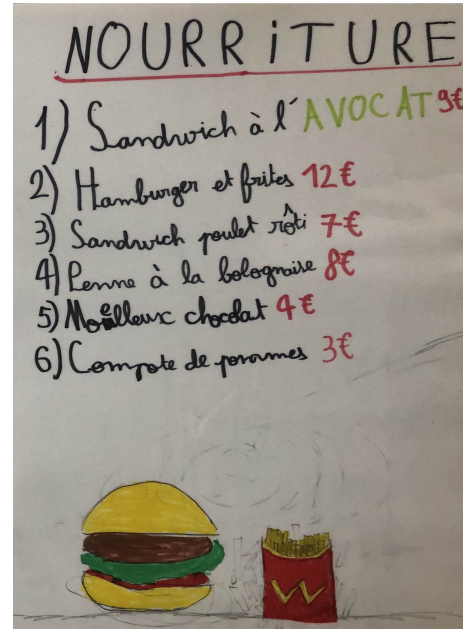 NOURRiTURE
1) Sandwich à l'AVOCAT 9€
2) Hamburger et frites 12€
3) Sandwich poulet rôti 7€
4) Penne à la bolognaise 8€
5) Moelleux chocolat 4€
6) Compote de pommes 3€